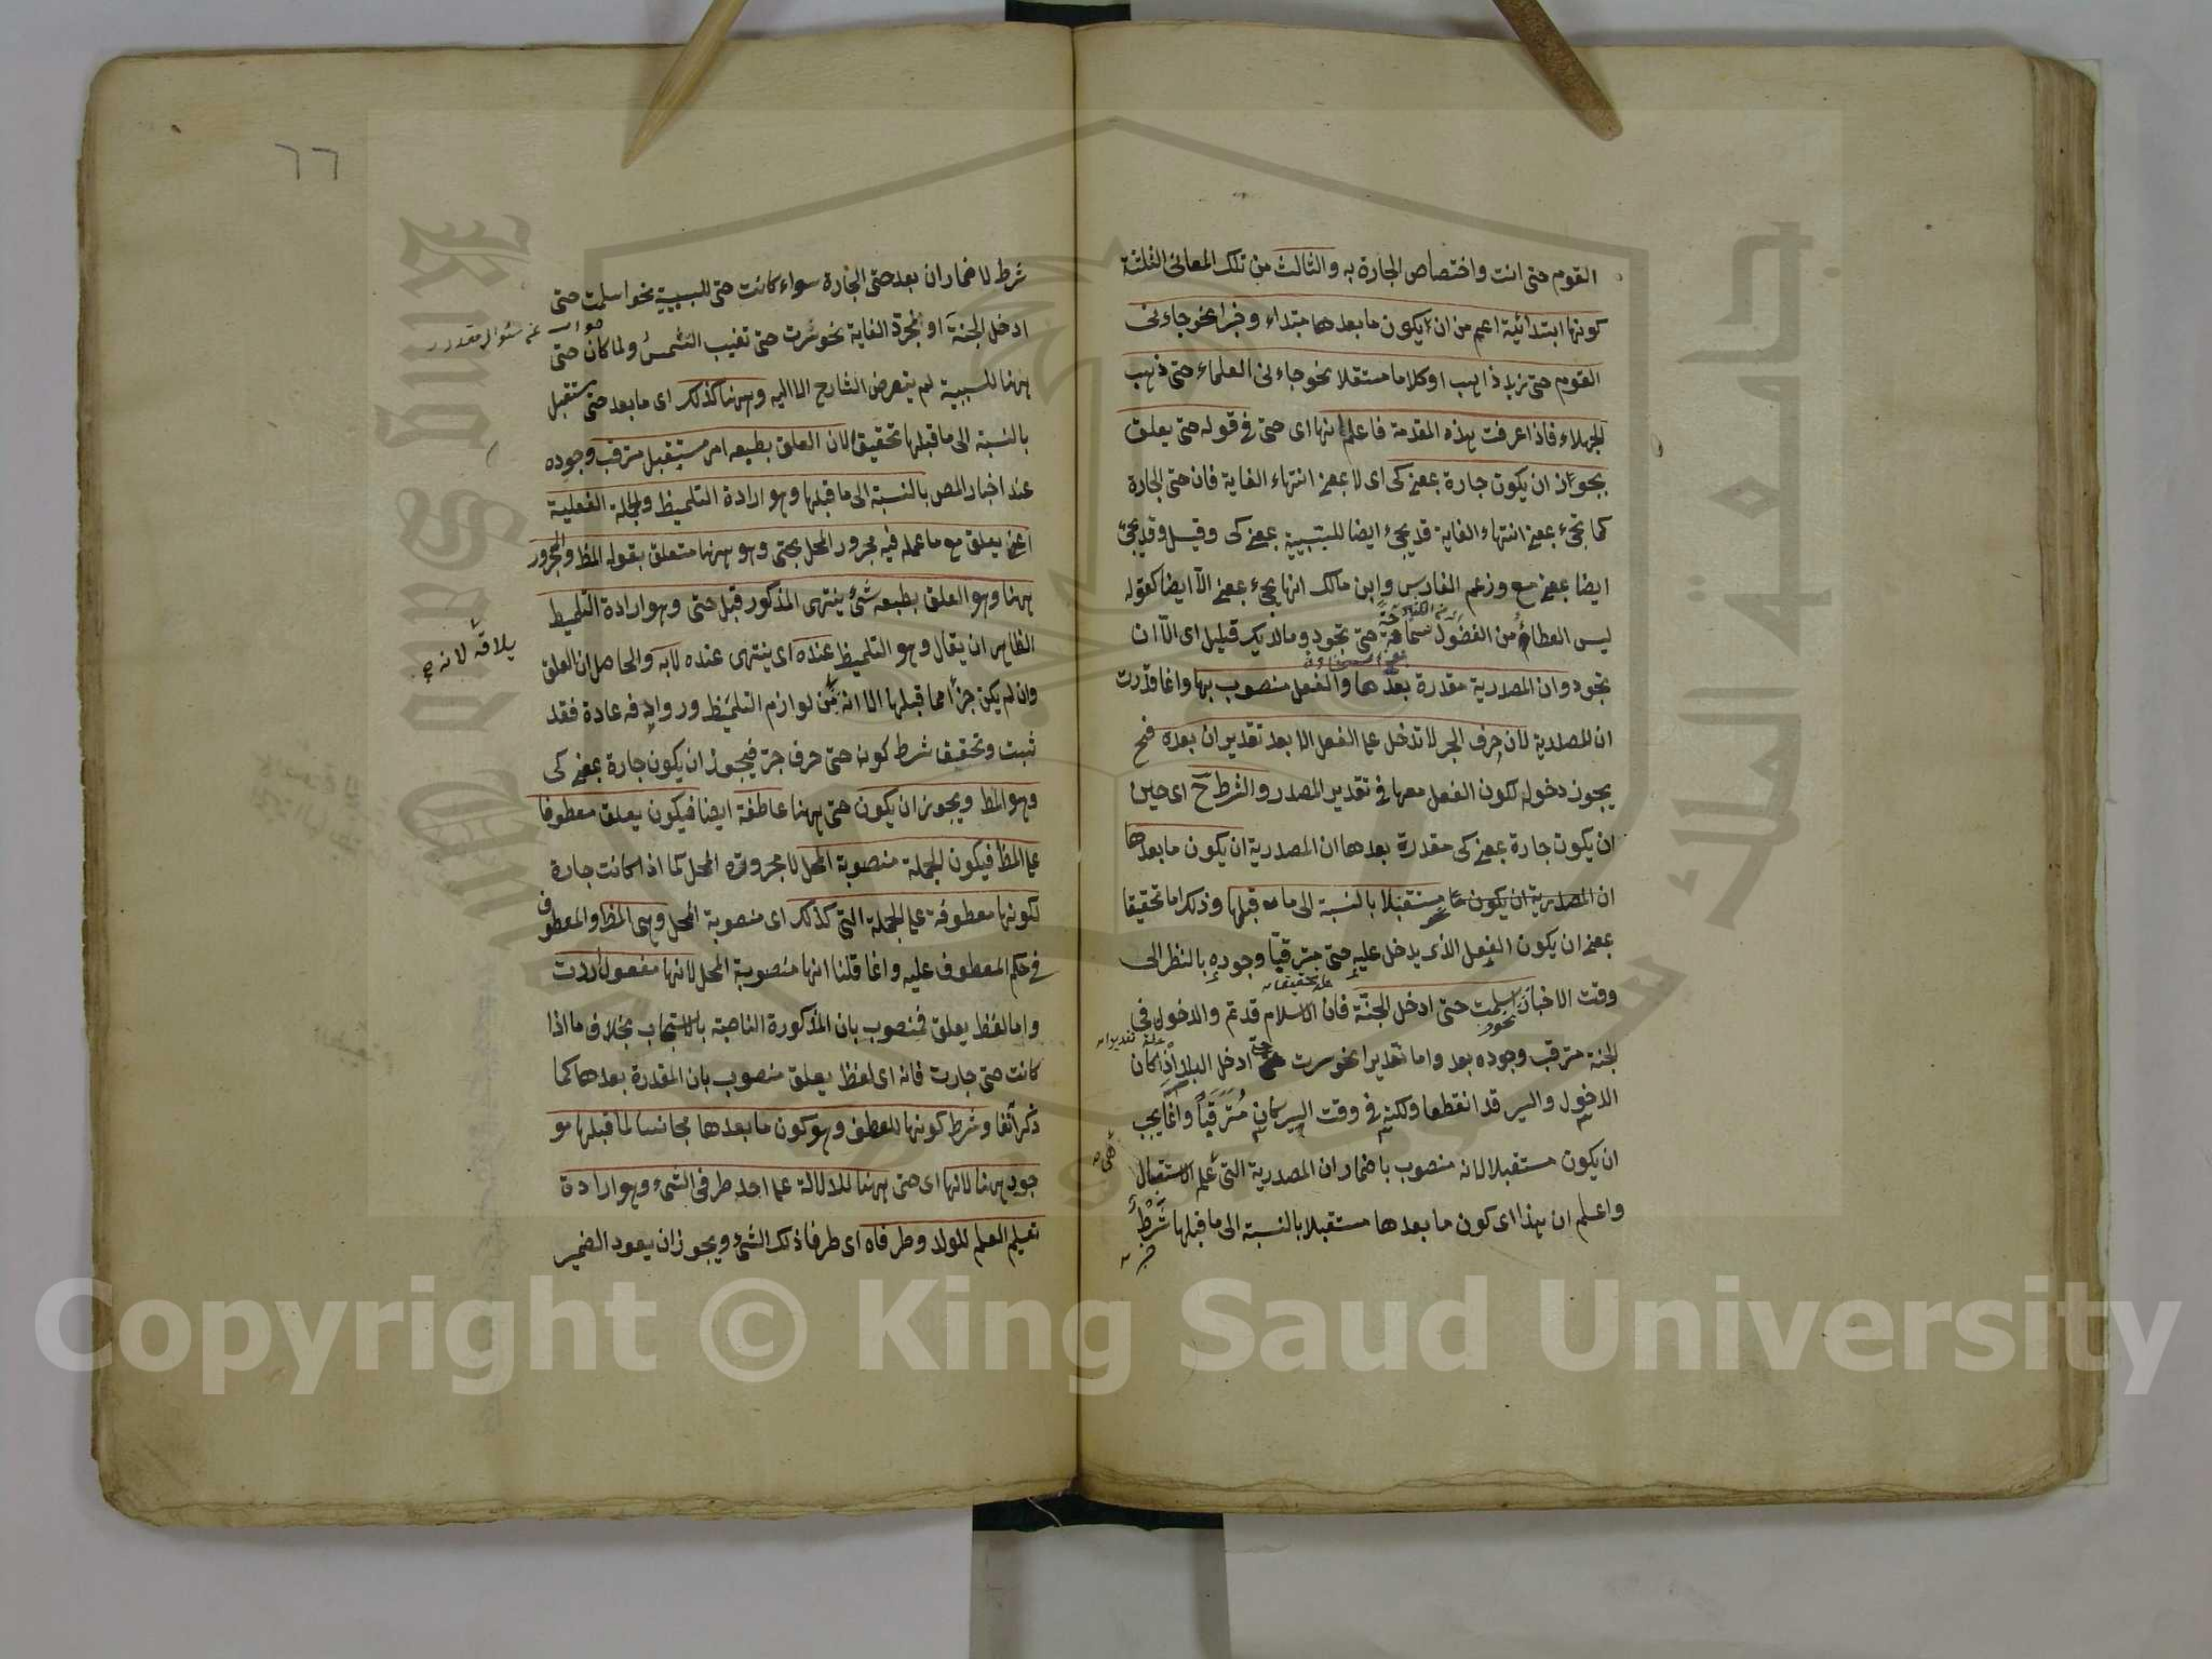 القوم حتى انت واختصاص الجارة به والثالث من تلك المعانى الثلثة
كونها ابتدائية اعم من ان يكون ما بعدها مبتداء وخبرا نحو جاءنى
القوم حتى زيد ذاهب او كلاما مستقلا نحو جاءنى العلماء حتى ذهب
الجهلاء فاذا عرفت هذه المقدمة فاعلم انها اى حتى فى قوله حتى يعلق
يجوز ان يكون جارة بمعنى كى اى لا بمعنى انتهاء الغاية فان حتى الجارة
كما تجئ بمعنى انتهاء الغاية قد يجئ ايضا للسببية بمعنى كى وقيل وقد يجئ
ايضا بمعنى مع وزعم الفارسى وابن مالك انها يجئ بمعنى الا ايضا كقوله
ليس العطاء من الفضول سماحة حتى تجود وما لديك قليل اى الا ان
تجود وان المصدرية مقدرة بعدها والفعل منصوب بها وانما قدرت
ان المصدرية لان حرف الجر لا تدخل على الفعل الا بعد تقدير ان بعده فح
يجوز دخوله لكون الفعل معها فى تقدير المصدر والشرط ح اى حين
ان يكون جارة بمعنى كى مقدرة بعدها ان المصدرية ان يكون ما بعدها
ان المصدرية ان يكون مستقبلا بالنسبة الى ما قبلها وذلك اما تحقيقا
بمعنى ان يكون الفعل الذى يدخل عليه حتى مترقبا وجوده بالنظر الى
وقت الاخبار نحو اسلمت حتى ادخل الجنة فان الاسلام قد تم والدخول فى
الجنة مترقب وجوده بعد واما تقديرا نحو سرت حتى ادخل البلد اذا كان
الدخول والسير قد انقطعا ولكنه فى وقت السير كان مترقبا وانما يجب
ان يكون مستقبلا لانه منصوب باضمار ان المصدرية التى علم الاستقبال
واعلم ان هذا اى كون ما بعدها مستقبلا بالنسبة الى ما قبلها شرط
٦٦
شرط لاضمار ان بعد حتى الجارة سواء كانت حتى للسببية نحو اسلمت حتى
ادخل الجنة او لمجرد الغاية نحو سرت حتى تغيب الشمس ولما كان حتى
جواب عن سئوال مقدر
ههنا للسببية لم يتعرض الشارح الا اليه وههنا كذلك اى ما بعد حتى مستقبل
بالنسبة الى ما قبلها تحقيقا لان العلق بطبعه امر مستقبل مترقب وجوده
عند اخبار المص بالنسبة الى ما قبلها وهو ارادة التلميظ والجملة الفعلية
اعنى يعلق مع ما عمله فيه مجرور المحل بحتى وهو ههنا متعلق بقوله المظ والمجرور
ههنا وهو العلق بطبعه شئ ينتهى المذكور قبل حتى وهو ارادة التلميظ
الظاهر ان يقال وهو التلميظ عنده اى ينتهى عنده لا به والحاصل ان العلق
يلاقه لانه
وان لم يكن جزأ مما قبلها الا انه من لوازم التلميظ وروادفه عادة فقد
ثبت وتحقيق شرط كون حتى حرف جر فيجوز ان يكون جارة بمعنى كى
وهو المظ ويجوز ان يكون حتى ههنا عاطفة ايضا فيكون يعلق معطوفا
على المظ فيكون الجملة منصوبة المحل لا مجرورة المحل كما اذا كانت جارة
لكونها معطوفة على الجملة التى كذلك اى منصوبة المحل وهى المظ والمعطوف
فى حكم المعطوف عليه وانما قلنا انها منصوبة المحل لانها مفعول اردت
واما لفظ يعلق فمنصوب بان المذكورة الناصبة بالاستجاب بخلاف ما اذا
كانت حتى جارت فانه اى لفظ يعلق منصوب بان المقدرة بعدها كما
ذكر آنفا وشرط كونها للعطف وهو كون ما بعدها مجانسا لما قبلها مو
جود ههنا لانها اى حتى ههنا للدلالة على احد طرفى الشئ وهو ارادة
تعليم العلم للولد وطرفاه اى طرفا ذلك الشئ ويجوز ان يعود الضمير
Copyright © King Saud University